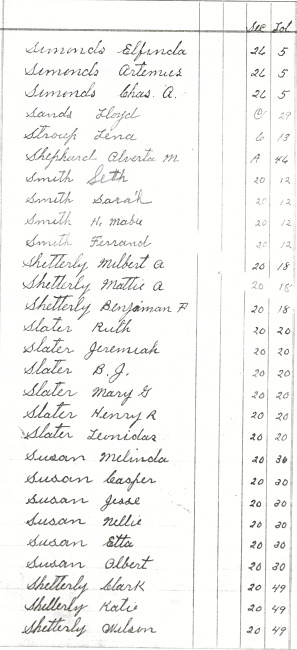 Sec Lot
Simonds Elfinda 26 5
Simonds Artemus 26 5
Simonds Chas. A. 26 5
Sands Lloyd C 29
Stroup Lena 6 13
Shephard Alverta M A 46
Smith Seth 20 12
Smith Sarah 20 12
Smith H. Mabu 20 12
Smith Ferrand 20 12
Shetterly Milbert A 20 18
Shetterly Mattie A 20 18
Shetterly Benjaman F 20 18
Slater Ruth 20 20
Slater Jeremiah 20 20
Slater B.J. 20 20
Slater Mary G 20 20
Slater Henry R 20 20
Slater Leonidas 20 20
Susan Melinda 20 30
Susan Casper 20 30
Susan Jesse 20 30
Susan Nellie 20 30
Susan Etta 20 30
Susan Albert 20 30
Shetterly Clark 20 49
Shetterly Katie 20 49
Shetterly Wilson 20 49